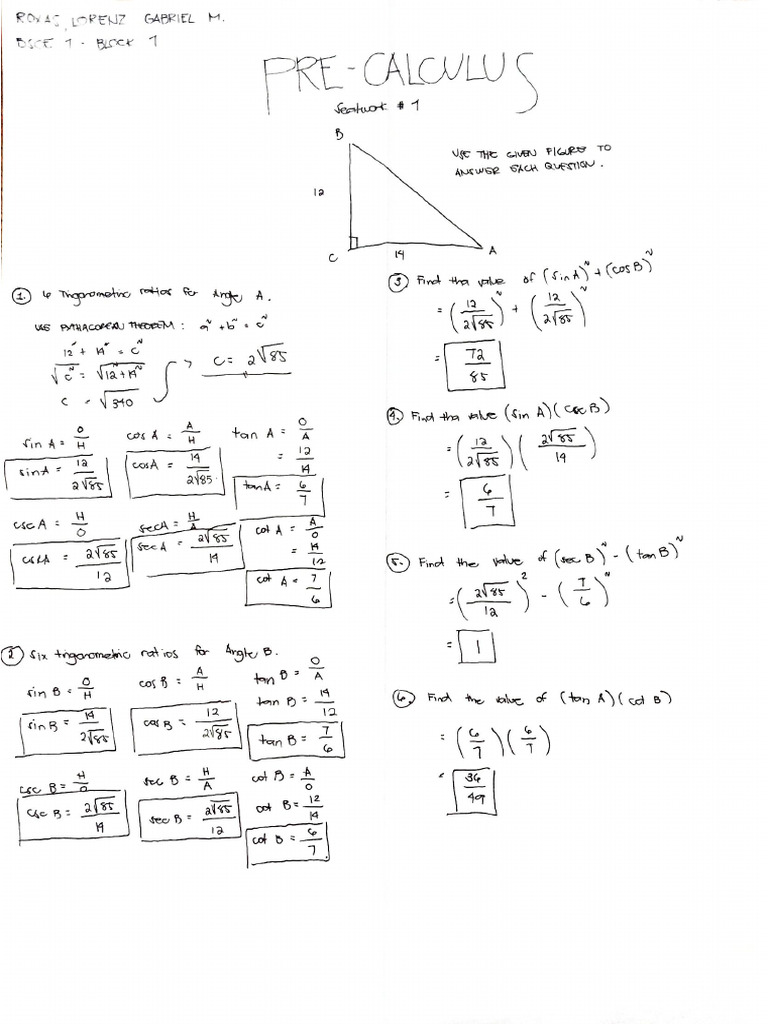 ROXAS, LORENZ GABRIEL M.
BSCE 1 - BLOCK 1
PRE-CALCULUS
Seatwork # 1
B
12
C
14
A
USE THE GIVEN FIGURE TO
ANSWER EACH QUESTION.
1. 6 Trigonometric ratios for Angle A.
USE PYTHAGOREAN THEOREM: a² + b² = c²
12² + 14² = c²
√c² = √12² + 14²
c = √340
c = 2√85
sin A = O/H
sin A = 12/2√85
cos A = A/H
cos A = 14/2√85
tan A = O/A
= 12/14
tan A = 6/7
csc A = H/O
csc A = 2√85/12
sec A = H/A
sec A = 2√85/14
cot A = A/O
= 14/12
cot A = 7/6
2 Six trigonometric ratios for Angle B.
sin B = O/H
sin B = 14/2√85
cos B = A/H
cos B = 12/2√85
tan B = O/A
tan B = 14/12
tan B = 7/6
csc B = H/O
csc B = 2√85/14
sec B = H/A
sec B = 2√85/12
cot B = A/O
cot B = 12/14
cot B = 6/7
3 Find tha value of (sin A)² + (cos B)²
= (12/2√85)² + (12/2√85)²
= 72/85
4. Find tha value (sin A)(csc B)
= (12/2√85)(2√85/14)
= 6/7
5. Find the value of (sec B)² - (tan B)²
= (2√85/12)² - (7/6)²
= 1
6. Find the value of (tan A)(cot B)
= (6/7)(6/7)
= 36/49